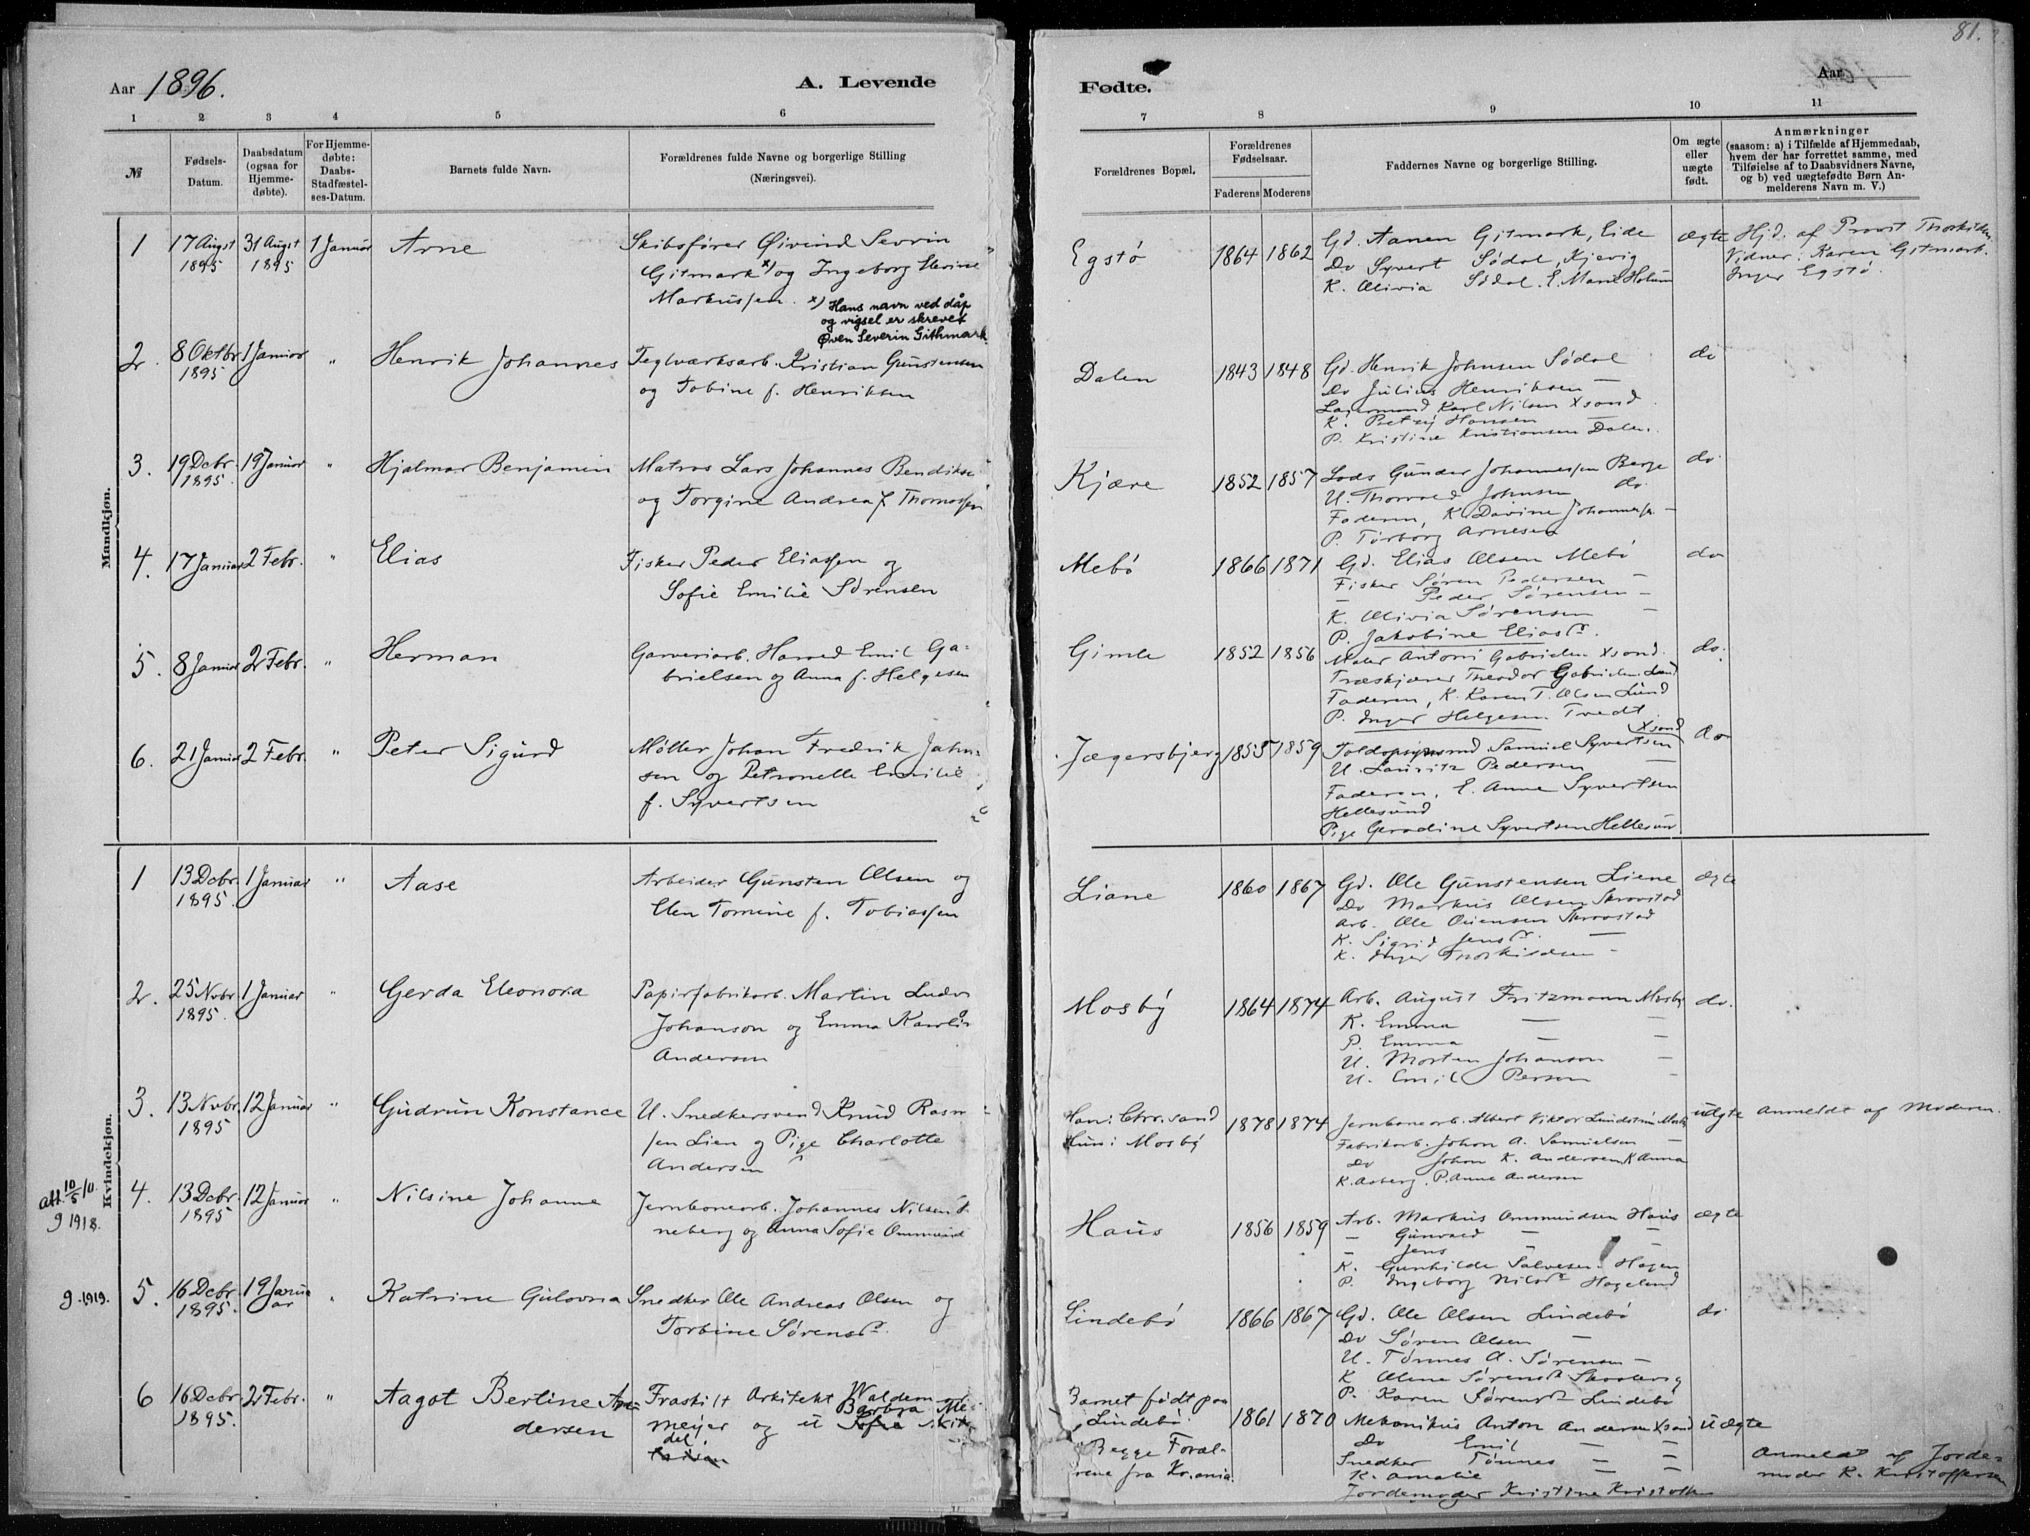 81.
Aar 1896.
A. Levende
Fødte.
Aar
1 2 3 4 5 6
7 8 9 10 11
№
Fødsels-
Datum.
Daabsdatum
(ogsaa for
Hjemme-
døbte).
For Hjemme-
døbte:
Daabs-
Stadfæstel-
ses-Datum.
Barnets fulde Navn.
Forældrenes fulde Navne og borgerlige Stilling
(Næringsvei).
Forældrenes Bopæl.
Forældrenes
Fødselsaar.
Faderens Moderens
Faddernes Navne og borgerlige Stilling.
Om ægte
eller
uægte
født.
Anmærkninger
(saasom: a) i Tilfælde af Hjemmedaab,
hvem der har forrettet samme, med
Tilføielse af to Daabsvidners Navne,
og b) ved uægtefødte Børn An-
melderens Navn m. V.)
Mandkjøn.
1 17 Augst 31 Augst 1 Januar Arne
1895 1895
Skibsfører Øivind Sevrin
Gitmark x) og Ingeborg
Markussen. x) Hans navn ved dåp
og vigsel er skrevet
Øven Severin Githmark
Egstø 1864 1862
Gd. Aanen Gitmark, Eide
Do Syvert Sødal, Kjevig
K. Olivia Sødal. E. Holum
ægte
Hjd. af Provst
Vidner: Karen Gitmark.
Inger Egstø.
2. 8 Oktbr 1 Januar " Henrik Johannes
1895
Teglværksarb. Kristian Gunstensen
og Tobine f. Henriksen
Dalen 1843 1848
Gd. Henrik Johnsen Sødal
Do Julius Henriksen —
Karl Nilsen Xsand
K. Hansen
P. Kristine Kristiansen Dalen.
do
3. 19 Dcbr. 19 Januar " Hjalmar Benjamin
1895
Matros Lars Johannes
og Torgine Andrea f. Thomassen
Kjære 1852 1857
Lods Gunder Johannessen Berge
U. Thorvald Johnsen do
Faderen, K. Davine —
P. Torborg Arnesen
do.
4. 17 Januar 2 Febr. " Elias
Fisker Peder Eliassen og
Sofie Emilie Sørensen
Mebø 1866 1871
Gd. Elias Olsen Mebø
Fisker Søren Pedersen —
— Peder Sørensen —
K. Olivia Sørensen —
P. Jakobine Eliasd.
do
5. 8 Januar 2 Febr. " Herman
Garveriarb. Emil Ga-
brielsen og Anna f. Helgesen
Gimle 1852 1856
Maler Antoni Gabrielsen Xsand.
Træskjærer Theodor Gabrielsen Lund
Faderen, K. Karen T. Olsen Lund
P. Inger Helgesen Tvedt
do.
6. 21 Januar 2 Febr. " Peter Sigurd
Møller Johan Fredrik
sen og Petronelle Emilie
f. Syvertsen
Jægersbjerg 1855 1859
Xsand
Samuel Syvertsen
U. Lauritz Pedersen —
Faderen, E. Anne Syvertsen
Hellesund
Pige Gerodine Syvertsen
do
Kvindekjøn.
1 13 Dcbr. 1 Januar " Aase
1895.
Arbeider Gunsten Olsen og
Elen Tomine f. Tobiassen
Liane 1860 1867
Gd. Ole Gunstensen Liene
Do Markus Olsen
Arb. Ole
K. Sigrid Jensd. —
K. Inger —
ægte
2. 25 Nvbr. 1 Januar " Gerda Eleonora
1895.
Papirfabrikarb. Martin
Johanson og Emma
Andersen
Mosby 1864 1874
Arb. August Fritzmann Mosby
K. Emma — —
P. Emma — —
U. Morten Johanson —
U. Emil Person —
do.
3. 13 Nvbr. 12 Januar " Gudrun Konstance
1895
U. Snedkersvend Knud
sen Lien og Pige Charlotte
Andersen
Han: Chr.sand
Hun: Mosby
1878 1874
Jernbanearb. Albert Viktor
Fabrikarb. Johan A. Samuelsen —
Do Johan K. Andersen, K Anna
K. Aaberg. P. Anne Andersen
uægte
anmeldt af Moderen.
att. 10/5 10.
g 1918.
4. 13 Dcbr. 12 Januar " Nilsine Johanne
1895
Jernbanearb. Johannes Nilsen
neberg og Anna Sofie
Haus 1856 1859
Arb. Markus Ommundsen Haus
— Gunvald — —
— Jens —
K. Gunhilde Salvesen Hagen
P. Ingeborg Nilsd. Hageland
ægte
g. 1919.
5. 16 Dcbr. 19 Janu- " Katrine Gulovna
1895. ar
Snedker Ole Andreas Olsen og
Torbine Sørensd.
Lindebø 1866 1867
Gd. Ole Olsen Lindebø
Do Søren Olsen —
U. Tønnes A. Sørensen —
K Sørensd.
P. Karen Sørensd. Lindebø
do
6 16 Dcbr. 2 Febr. " Aagot Bertine An-
1895. dersen
Fraskilt Arkitekt
Meijer og U Barbra
del
Barnet født paa
Lindebø.
Begge Foræl-
rene fra Kr.ania.
1861 1870
Mekanikus Anton Andersen Xsand
Do Emil — —
Snedker Tønnes — —
K. Amalie — —
Jordemoder Kristine
uægte
Anmeldt af Jorde-
moder K. Kristoffersen